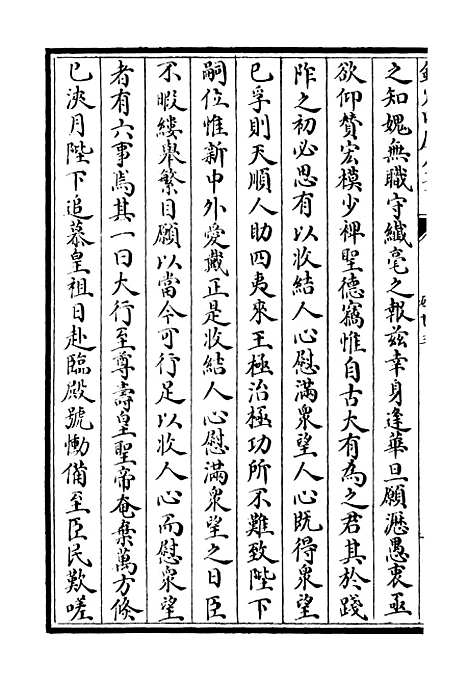 之知媿無職守纎毫之報兹幸身逢華旦願瀝愚衷亟
欲仰賛宏模少裨聖德竊惟自古大有為之君其於踐
阼之初必思有以收結人心慰滿衆望人心既得衆望
已孚則天順人助四夷來王極治極功所不難致陛下
嗣位惟新中外愛戴正是收結人心慰滿衆望之日臣
不暇縷舉繁目願以當今可行足以收人心而慰衆望
者有六事焉其一曰大行至尊壽皇聖帝奄棄萬方倐
已浹月陛下追慕皇祖日赴臨殿號慟備至臣民歎嗟